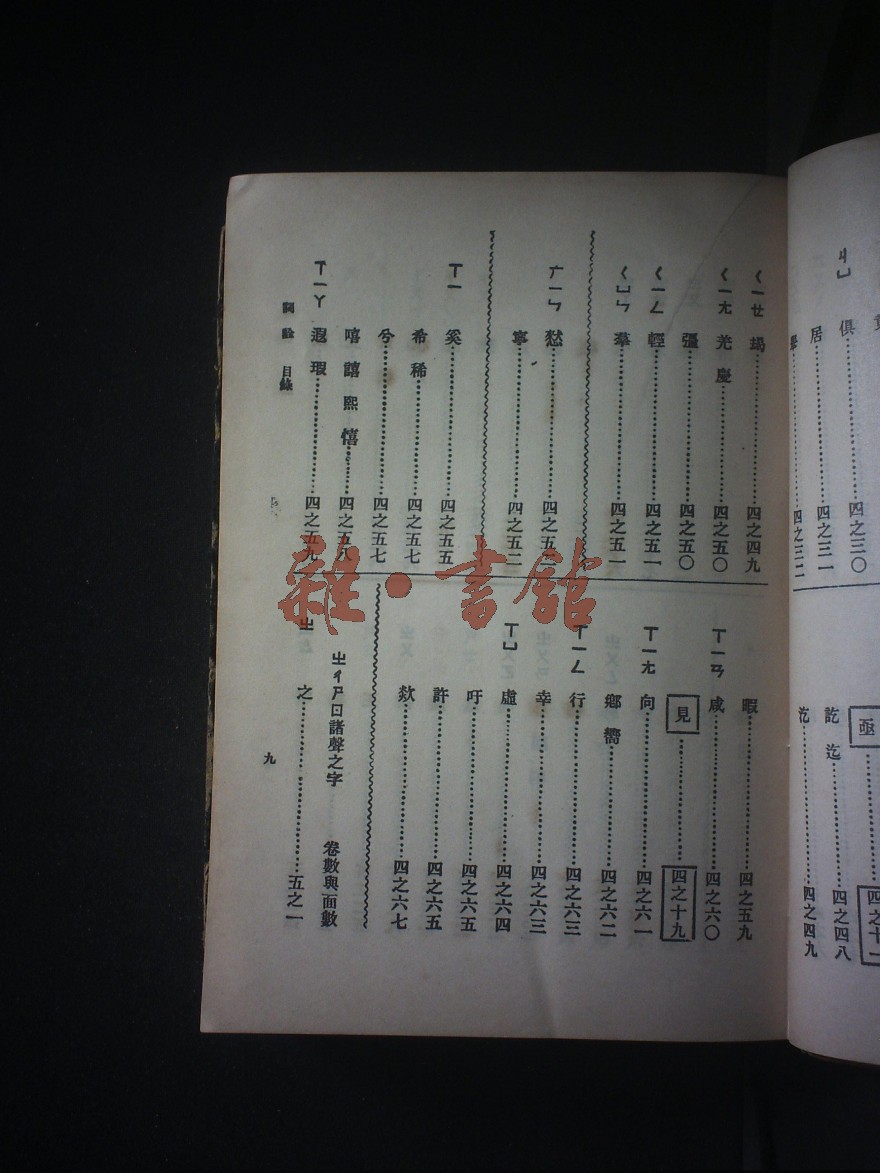 ㄐㄩ 俱……四之三〇
居……四之三一
四之三二
亟……四之十一
訖 迄……四之四八
汔……四之四九
ㄑㄧㄝ 朅……四之四九
ㄑㄧㄤ 羌 慶……四之五〇
彊……四之五〇
ㄑㄧㄥ 輕……四之五一
ㄑㄩㄣ 羣……四之五一
ㄬㄧㄣ 憖……四之五二
寧……四之五二
ㄒㄧ 奚……四之五五
希 稀……四之五七
兮……四之五七
嘻 譆 熙 憘……四之五八
ㄒㄧㄚ 遐 瑕……四之五九
暇……四之五九
ㄒㄧㄢ 咸……四之六〇
見……四之十九
ㄒㄧㄤ 向……四之六一
鄉 嚮……四之六二
ㄒㄧㄥ 行……四之六三
幸……四之六三
ㄒㄩ 虛……四之六四
吁……四之六五
許……四之六五
欻……四之六七
ㄓㄔㄕㄖ諸聲之字 卷數與面數
ㄓ 之……五之一
詞詮 目錄
九
雜·書館